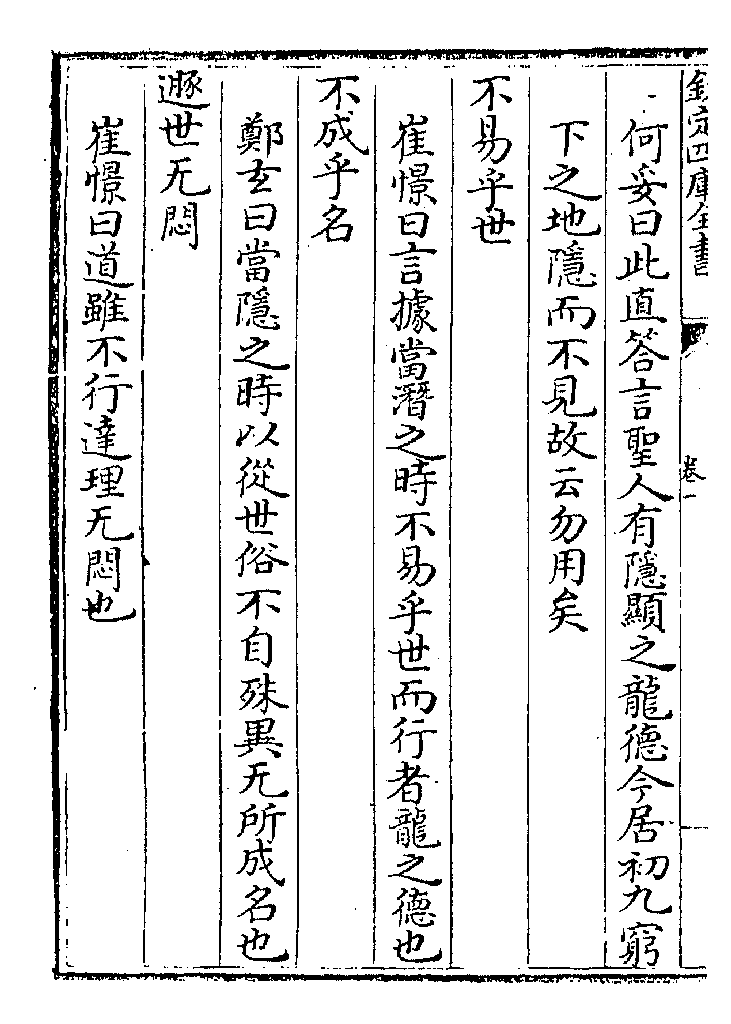 欽定四庫全書
卷一
何妥曰此直答言聖人有隱顯之龍德今居初九窮
下之地隱而不見故云勿用矣
不易乎世
崔憬曰言據當潛之時不易乎世而行者龍之德也
不成乎名
鄭玄曰當隱之時以從世俗不自殊異无所成名也
遯世无悶
崔憬曰道雖不行達理无悶也